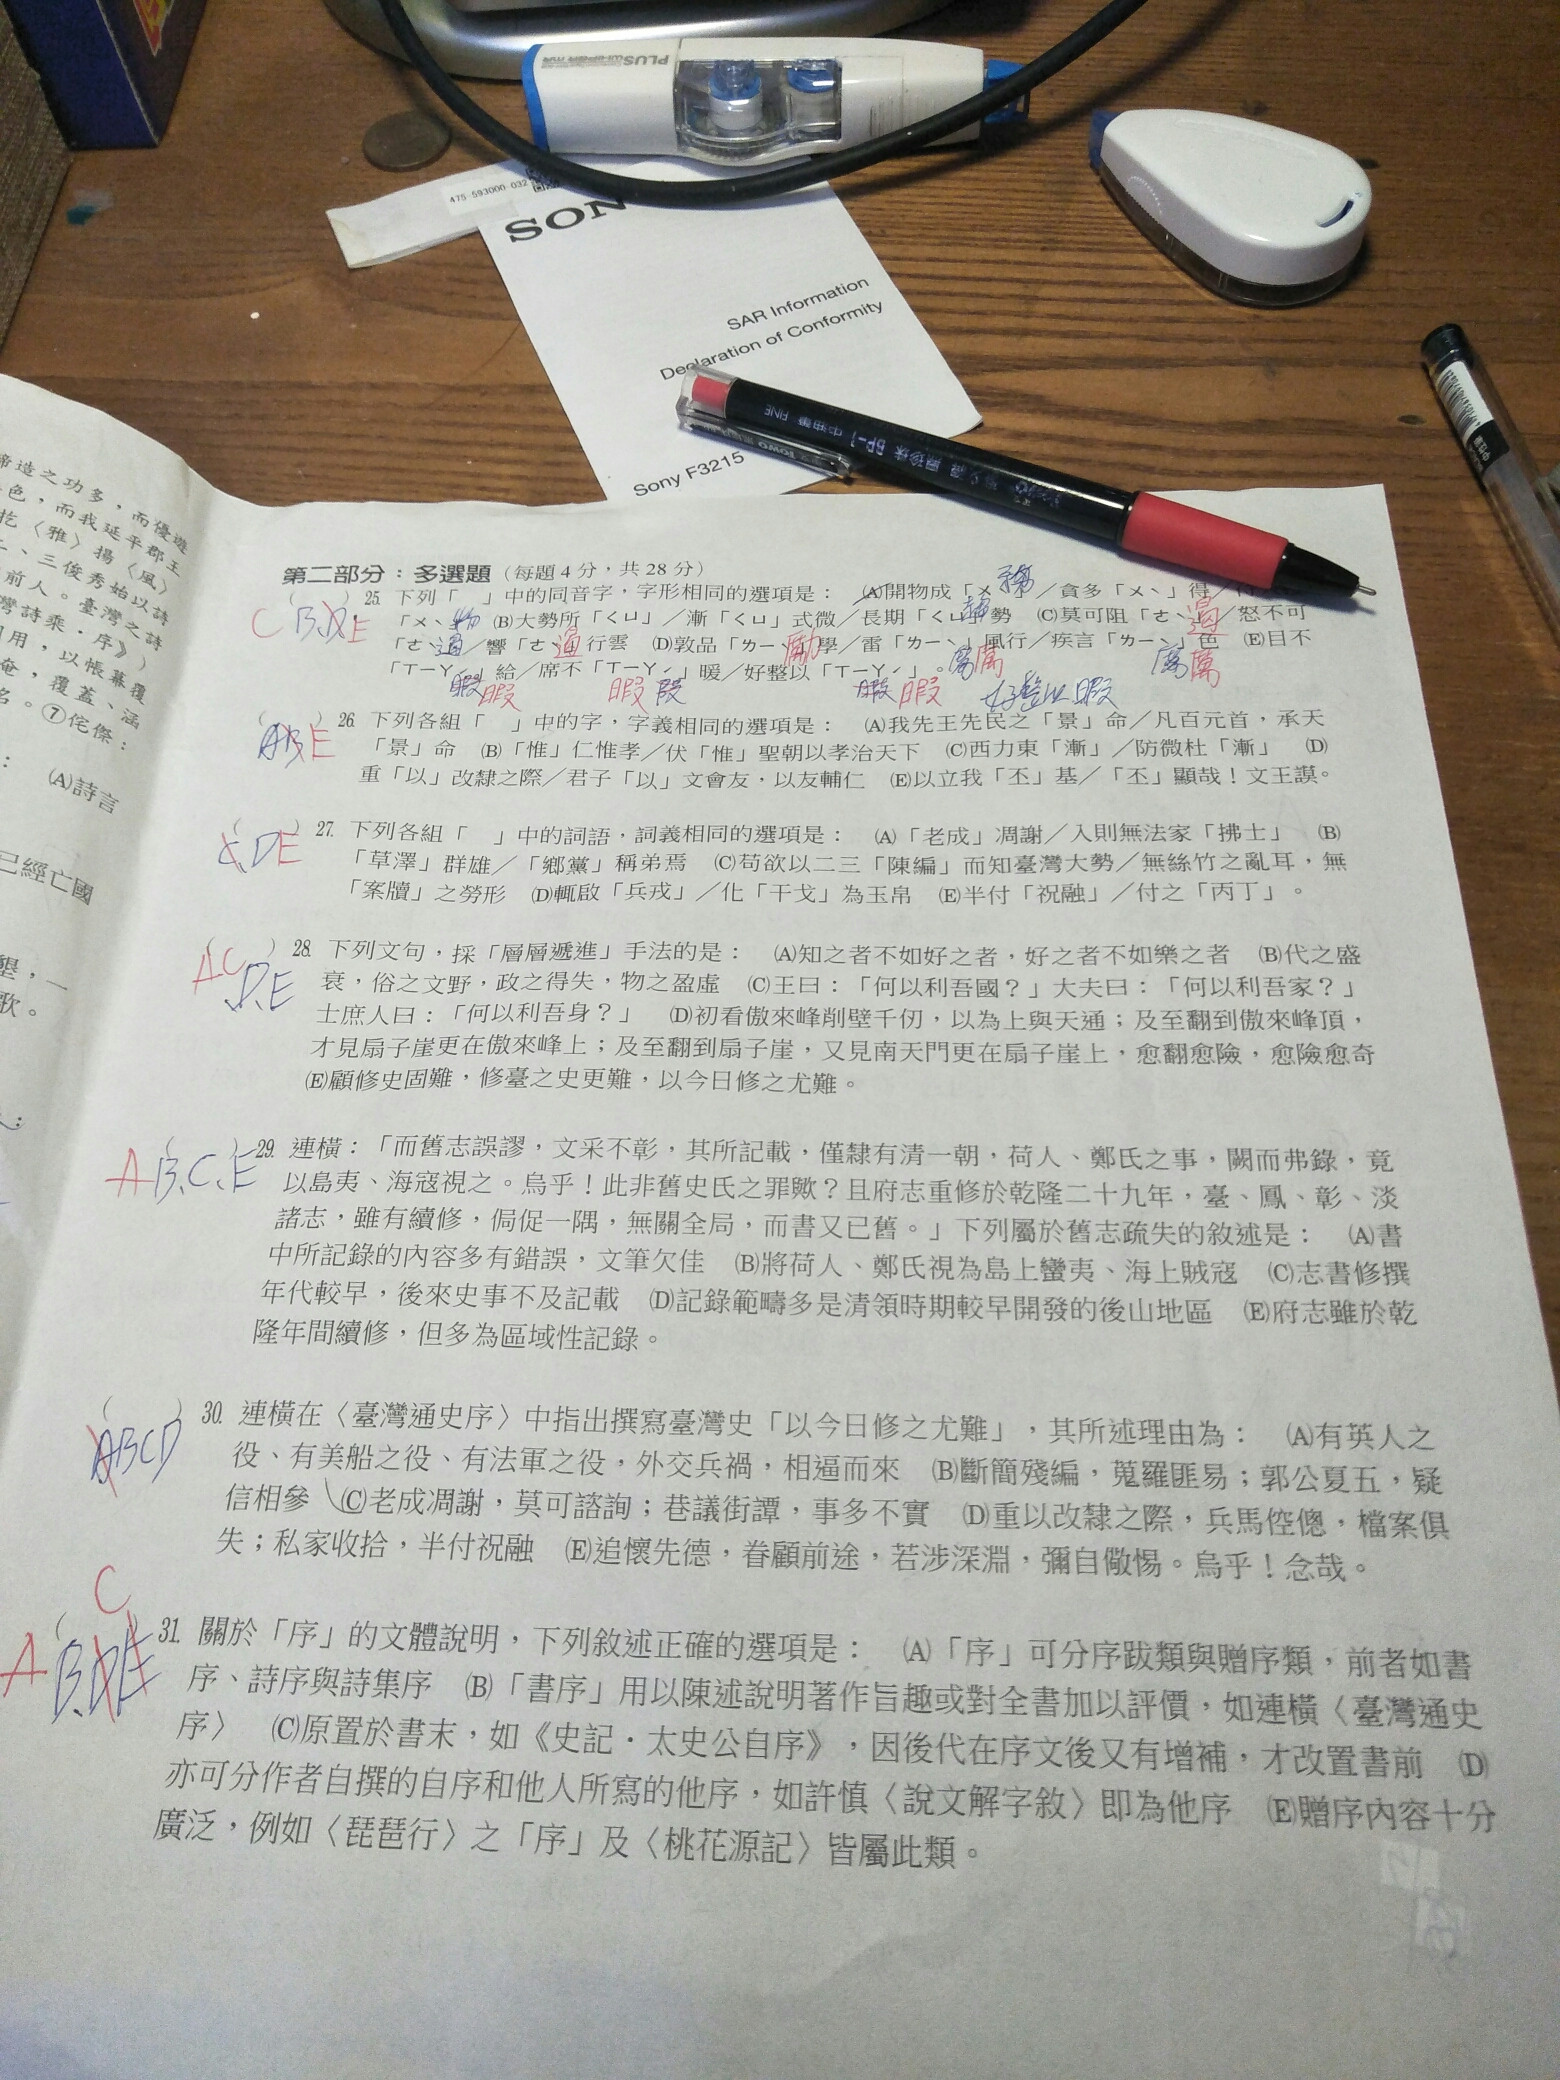 PLUS
475-593000-032
SON
SAR Information
Declaration of Conformity
Sony F3215
締造之功多，而優遊
色，而我延平郡王
〈雅〉揚〈風〉
二、三俊秀始以詩
前人。臺灣之詩
灣詩乘·序》）
用，以帳幕覆
奄，覆蓋、涵
名。⑦侘傺：
(A)詩言
已經亡國
墾，一
歌。
第二部分：多選題（每題4分，共28分）
C B.D.E
25. 下列「　」中的同音字，字形相同的選項是： (A)開物成「ㄨˋ」／貪多「ㄨˋ」得／
「ㄨˋ」物 (B)大勢所「ㄑㄩ」／漸「ㄑㄩ」式微／長期「ㄑㄩ」勢 (C)莫可阻「ㄜˋ」／怒不可
「ㄜˋ」／響「ㄜˋ」行雲 (D)敦品「ㄌㄧˋ」學／雷「ㄌㄧˋ」風行／疾言「ㄌㄧˋ」色 (E)目不
「ㄒㄧㄚˊ」給／席不「ㄒㄧㄚˊ」暖／好整以「ㄒㄧㄚˊ」。
務
遏
勵
厲
厲
暇 暇
暇
暇 暇
好整以暇
ABE
26. 下列各組「　」中的字，字義相同的選項是： (A)我先王先民之「景」命／凡百元首，承天
「景」命 (B)「惟」仁惟孝／伏「惟」聖朝以孝治天下 (C)西力東「漸」／防微杜「漸」 (D)
重「以」改隸之際／君子「以」文會友，以友輔仁 (E)以立我「丕」基／「丕」顯哉！文王謨。
C.DE
27. 下列各組「　」中的詞語，詞義相同的選項是： (A)「老成」凋謝／入則無法家「拂士」 (B)
「草澤」群雄／「鄉黨」稱弟焉 (C)苟欲以二三「陳編」而知臺灣大勢／無絲竹之亂耳，無
「案牘」之勞形 (D)輒啟「兵戎」／化「干戈」為玉帛 (E)半付「祝融」／付之「丙丁」。
AC D.E
28. 下列文句，採「層層遞進」手法的是： (A)知之者不如好之者，好之者不如樂之者 (B)代之盛
衰，俗之文野，政之得失，物之盈虛 (C)王曰：「何以利吾國？」大夫曰：「何以利吾家？」
士庶人曰：「何以利吾身？」 (D)初看傲來峰削壁千仞，以為上與天通；及至翻到傲來峰頂，
才見扇子崖更在傲來峰上；及至翻到扇子崖，又見南天門更在扇子崖上，愈翻愈險，愈險愈奇
(E)顧修史固難，修臺之史更難，以今日修之尤難。
A B.C.E
29. 連橫：「而舊志誤謬，文采不彰，其所記載，僅隸有清一朝，荷人、鄭氏之事，闕而弗錄，竟
以島夷、海寇視之。烏乎！此非舊史氏之罪歟？且府志重修於乾隆二十九年，臺、鳳、彰、淡
諸志，雖有續修，侷促一隅，無關全局，而書又已舊。」下列屬於舊志疏失的敘述是： (A)書
中所記錄的內容多有錯誤，文筆欠佳 (B)將荷人、鄭氏視為島上蠻夷、海上賊寇 (C)志書修撰
年代較早，後來史事不及記載 (D)記錄範疇多是清領時期較早開發的後山地區 (E)府志雖於乾
隆年間續修，但多為區域性記錄。
ABCD
30. 連橫在〈臺灣通史序〉中指出撰寫臺灣史「以今日修之尤難」，其所述理由為： (A)有英人之
役、有美船之役、有法軍之役，外交兵禍，相逼而來 (B)斷簡殘編，蒐羅匪易；郭公夏五，疑
信相參 (C)老成凋謝，莫可諮詢；巷議街譚，事多不實 (D)重以改隸之際，兵馬倥傯，檔案俱
失；私家收拾，半付祝融 (E)追懷先德，眷顧前途，若涉深淵，彌自儆惕。烏乎！念哉。
C
A B.DE
31. 關於「序」的文體說明，下列敘述正確的選項是： (A)「序」可分序跋類與贈序類，前者如書
序、詩序與詩集序 (B)「書序」用以陳述說明著作旨趣或對全書加以評價，如連橫〈臺灣通史
序〉 (C)原置於書末，如《史記·太史公自序》，因後代在序文後又有增補，才改置書前 (D)
亦可分作者自撰的自序和他人所寫的他序，如許慎〈說文解字敘〉即為他序 (E)贈序內容十分
廣泛，例如〈琵琶行〉之「序」及〈桃花源記〉皆屬此類。